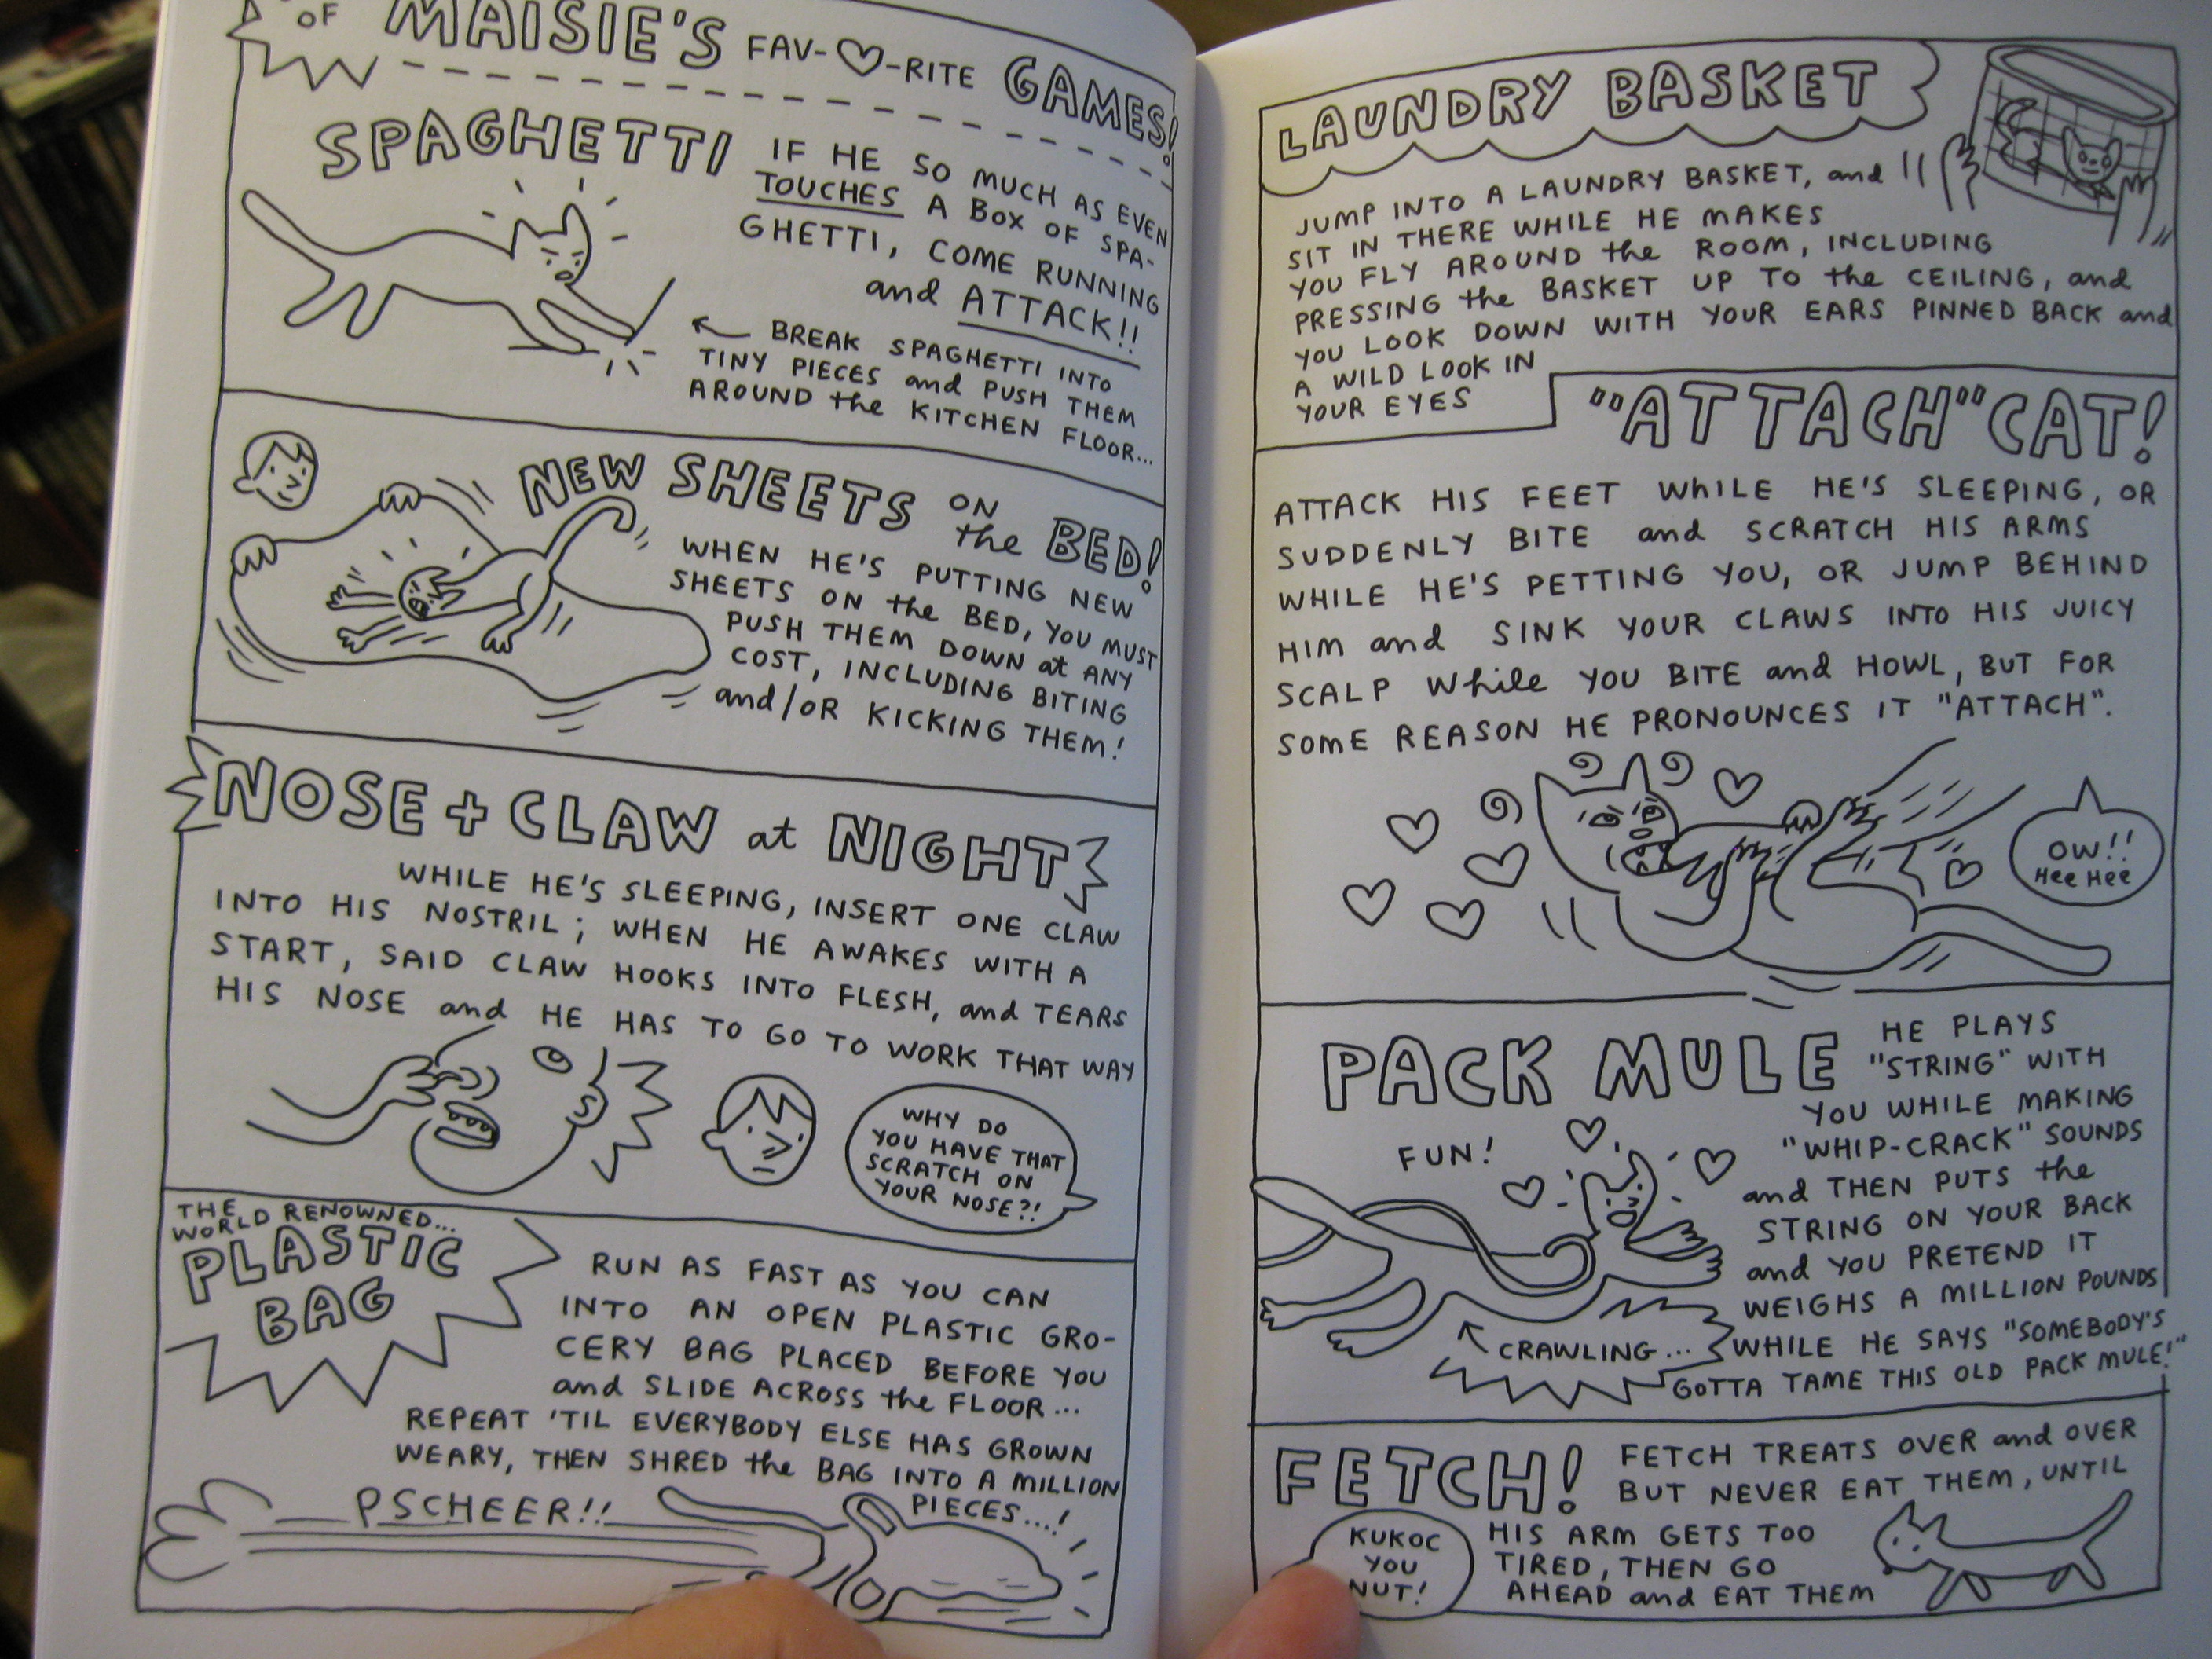 OF MAISIE'S FAV-♡-RITE GAMES!
SPAGHETTI
IF HE SO MUCH AS EVEN
TOUCHES A BOX OF SPA-
GHETTI, COME RUNNING
and ATTACK!!
BREAK SPAGHETTI INTO
TINY PIECES and PUSH THEM
AROUND the KITCHEN FLOOR...
NEW SHEETS ON
the BED!
WHEN HE'S PUTTING NEW
SHEETS ON the BED, YOU MUST
PUSH THEM DOWN at ANY
COST, INCLUDING BITING
and/OR KICKING THEM!
NOSE + CLAW at NIGHT
WHILE HE'S SLEEPING, INSERT ONE CLAW
INTO HIS NOSTRIL; WHEN HE AWAKES WITH A
START, SAID CLAW HOOKS INTO FLESH, and TEARS
HIS NOSE and HE HAS TO GO TO WORK THAT WAY
WHY DO
YOU HAVE THAT
SCRATCH ON
YOUR NOSE?!
THE
WORLD RENOWNED...
PLASTIC
BAG
RUN AS FAST AS YOU CAN
INTO AN OPEN PLASTIC GRO-
CERY BAG PLACED BEFORE YOU
and SLIDE ACROSS the FLOOR...
REPEAT 'TIL EVERYBODY ELSE HAS GROWN
WEARY, THEN SHRED the BAG INTO A MILLION
PIECES....!
PSCHEER!!
LAUNDRY BASKET
JUMP INTO A LAUNDRY BASKET, and
SIT IN THERE WHILE HE MAKES
YOU FLY AROUND the ROOM, INCLUDING
PRESSING the BASKET UP TO the CEILING, and
YOU LOOK DOWN WITH YOUR EARS PINNED BACK and
A WILD LOOK IN
YOUR EYES
"ATTACH" CAT!
ATTACK HIS FEET WHILE HE'S SLEEPING, OR
SUDDENLY BITE and SCRATCH HIS ARMS
WHILE HE'S PETTING YOU, OR JUMP BEHIND
HIM and SINK YOUR CLAWS INTO HIS JUICY
SCALP While YOU BITE and HOWL, BUT FOR
SOME REASON HE PRONOUNCES IT "ATTACH".
OW!!
Hee Hee
PACK MULE
HE PLAYS
"STRING" WITH
YOU WHILE MAKING
"WHIP-CRACK" SOUNDS
and THEN PUTS the
STRING ON YOUR BACK
and YOU PRETEND IT
WEIGHS A MILLION POUNDS
WHILE HE SAYS "SOMEBODY'S
GOTTA TAME THIS OLD PACK MULE!"
FUN!
CRAWLING...
FETCH!
FETCH TREATS OVER and OVER
BUT NEVER EAT THEM, UNTIL
HIS ARM GETS TOO
TIRED, THEN GO
AHEAD and EAT THEM
KUKOC
YOU
NUT!